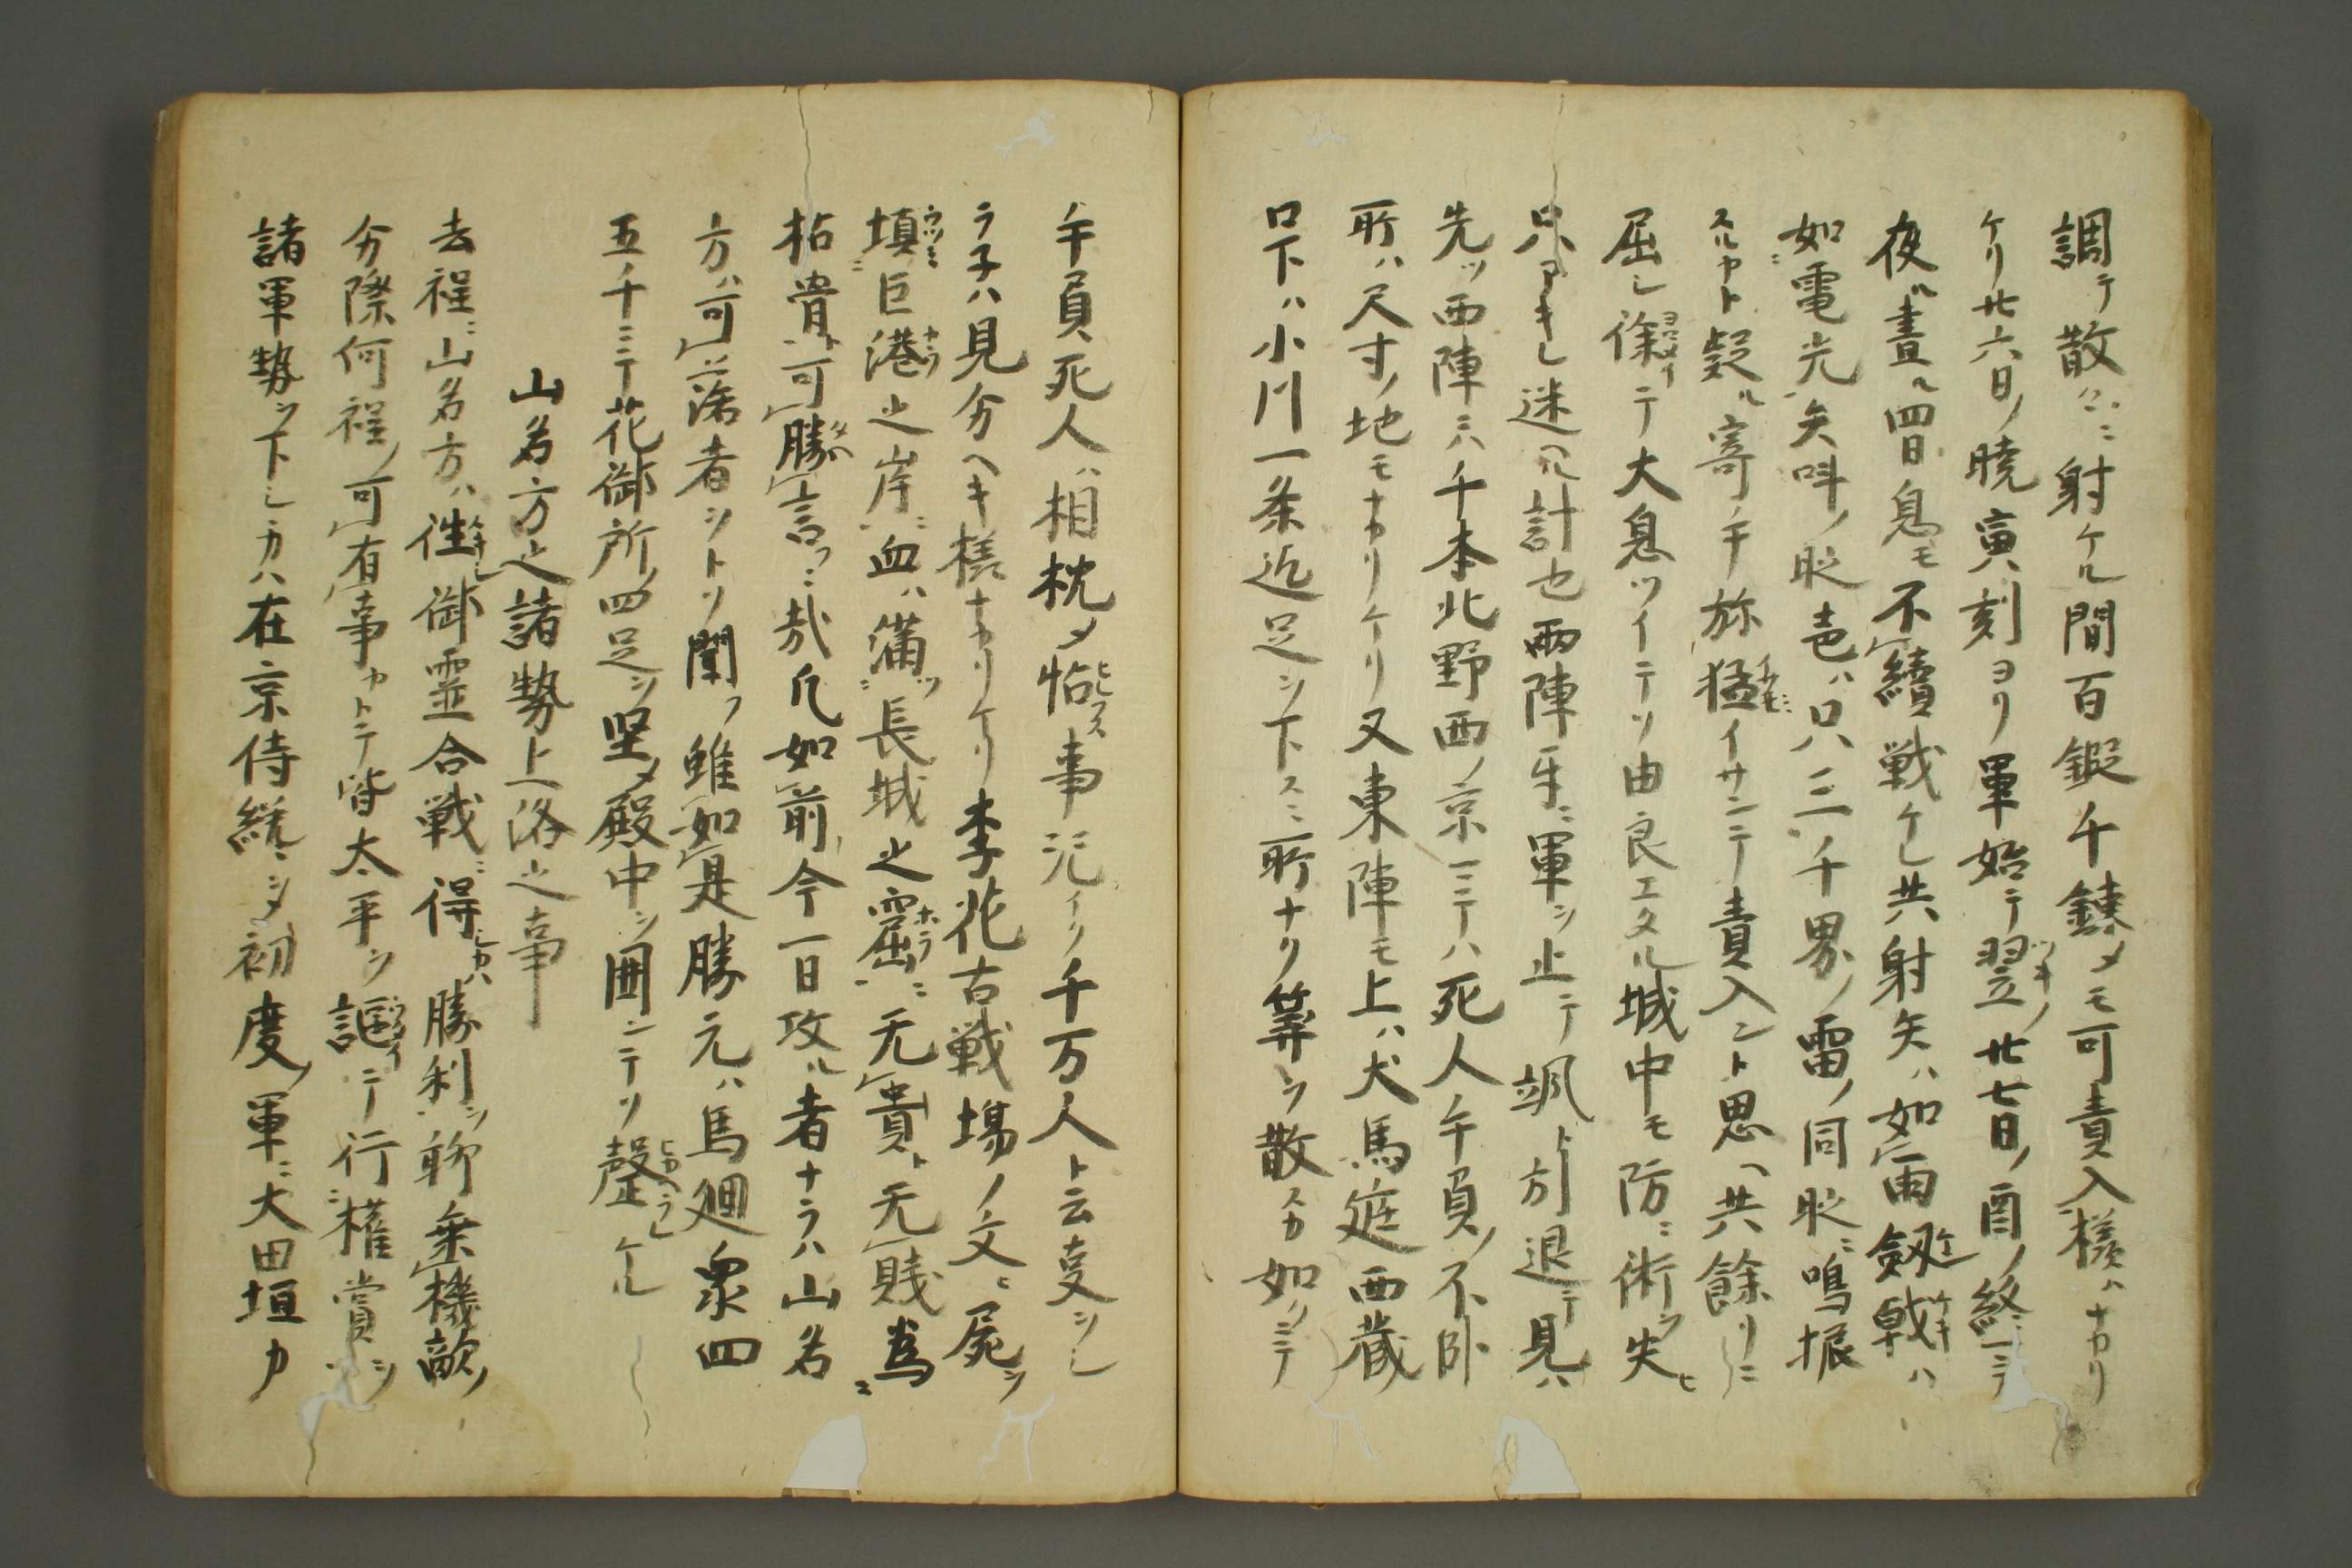 調テ散々ニ射ケル間百鍛千錬メモ可責入様ハナカリ
ケリ廿六日ノ暁寅刻ヨリ軍始テ翌ツキノ廿七日ノ酉ノ終ニテ
夜ハ昼ル四日息モ不續戦ケレ共射矢ハ如雨劔戟ケンケキハ
如電光矢呌ノ聲ハ只三千界ノ雷ノ同聲ニ鳴振
スルカト疑ル寄手弥猛イヤタケニイサンテ責入ント思ヘ共餘リニ
屈シ徐テ大息ツイテソ由良エタル城中モ防ニ術ヲ失ヒ
只アキレ迷ヘル計也両陣互ニ軍ヲ止テ颯ト引退テ見ハ
先ツ西陣ニハ千本北野西ノ京ニテハ死人手負ノ不臥
所ハ尺寸ノ地モナカリケリ又東陣モ上ハ犬馬庭西蔵
口下ハ小川一条迄足ヲ下スニ所ナリ算ヲ散スカ如クニテ
手負死人ハ相枕メ怗ヒヒタヽス事況ヤ千万人ト云更シレ
ラ子ハ見分ヘキ様ナカリケリ李花古戦場ノ文ニ屍ヲ
填ウツミ巨港之岸ニ血ハ満ツ長城之窟ホラニ无貴ト无賤為
枯骨可勝言フニ哉凡如前今一日攻ル者ナラハ山名
方ハ可落者ヲトソ聞フ雖如是勝元ハ馬廻衆四
五千ニテ花御所ノ四足ヲ堅メ殿中ヲ囲ンテソ聲ケル
山名方之諸勢上洛之事
去程ニ山名方ハ往御霊合戦ニ得シカハ勝利ヲ聊乗機敵ノ
分際何程ノ可有事カトテ皆太平ヲ謳ウタイテ行ニ権賞ヲ
諸軍勢ヲ下シカハ在京侍統ニシメ初度ノ軍ニ大田垣カ